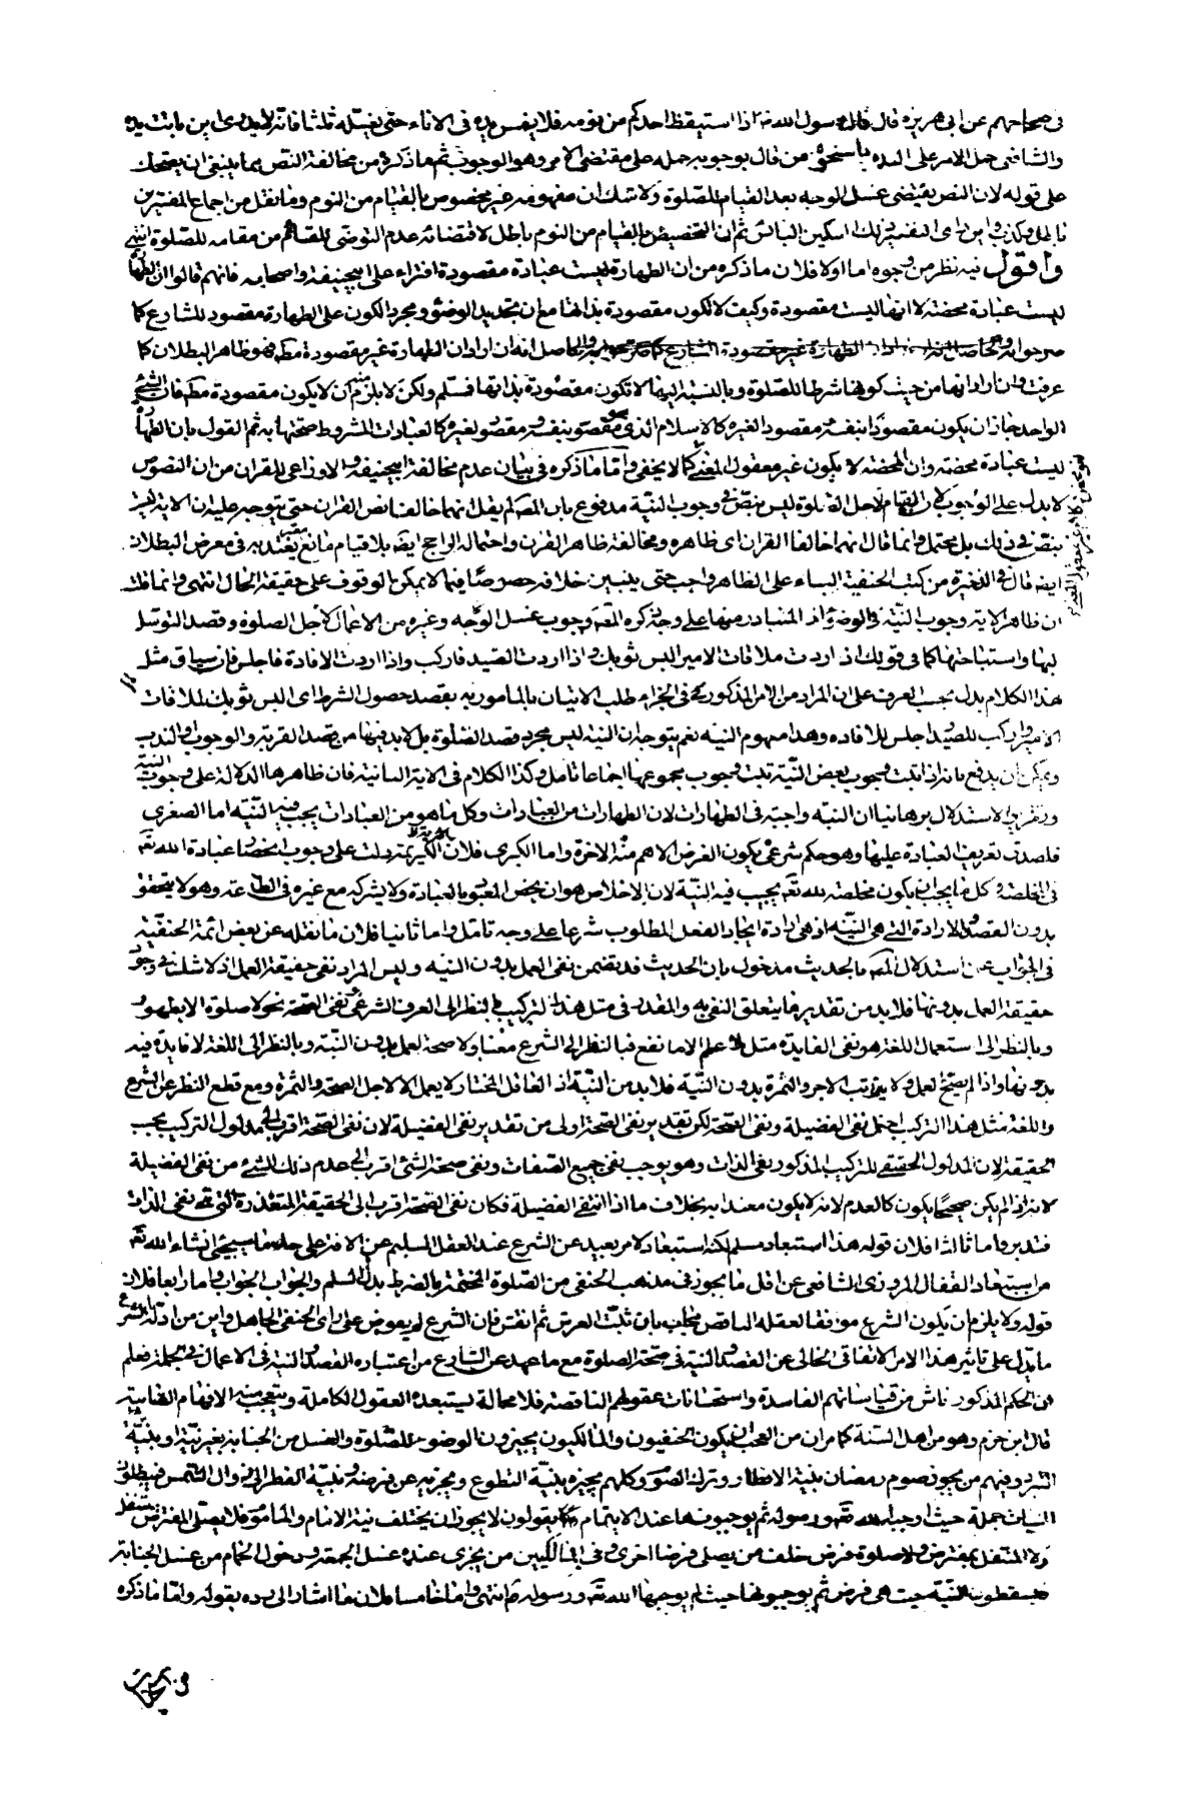 في صحاحهم عن ابي هريرة قال قال رسول الله ص اذا استيقظ احدكم من نومه فلا يغمس يده في الاناء حتى يغسله ثلثا فانه لا يدري اين باتت يده
والشافعي حمل الامر على الندب من قال بوجوبه حمله على مقتضى الامر وهو الوجوب ثم ما ذكره من مخالفة النص مما ينبغي ان يضحك
على قوله لان النص يقتضي غسل الوجه بعد القيام للصلوة ولا شك ان مفهومه غير مخصوص بالقيام من النوم وما نقل من اجماع المفسرين
باطل وكذب واين راى المفسرين ذلك المسكين البائس ثم ان التخصيص بالقيام من النوم باطل لاقتضائه عدم التوضي للقائم من مقامه للصلوة انتهى
واقول فيه نظر من وجوه اما اولا فلان ما ذكره من ان الطهارة ليست عبادة مقصودة افتراء على ابيحنيفة واصحابه فانهم قالوا ان الطهارة
ليست عبادة محضة لا انها ليست مقصودة وكيف لا تكون مقصودة بذاتها مع ان تجديد الوضوء ومجرد الكون على الطهارة مقصود للشارع كما
صرحوا به والحاصل انه ان اراد ان الطهارة غير مقصودة مطلقا فهو ظاهر البطلان كما
عرفت وان اراد انها من حيث كونها شرطا للصلوة وبالنسبة اليها لا تكون مقصودة بذاتها فمسلم ولكن لا يلزم منه ان لا يكون مقصودة مطلقا فان الشئ
الواحد جاز ان يكون مقصودا بنفسه مقصودا لغيره كالاسلام الذي هو مقصود بنفسه ومقصود لغيره كالعبادات المشروط صحتها به ثم القول بان الطهارة
ليست عبادة محضة وان المحضة لا يكون غير معقول المعنى كما لا يخفى واما ما ذكره في بيان عدم مخالفة ابيحنيفة والاوزاعي للقران من ان النصوص
لا يدل على الوجوب لان القيام لاجل الصلوة ليس بنص في وجوب النية مدفوع بان المص لم يقل انهما خالفا نص القران حتى يتوجه عليه ان الاية ليست
بنص في ذلك بل محتمل وانما قال انهما خالفا القران اى ظاهره ومخالفة ظاهر القرن واحتماله الراجح ايضا بلا قيام مانع يعتد به في معرض البطلان
ايضا قال في الذخيرة من كتب الحنفية البناء على الظاهر واجب حتى يتبين خلافه خصوصا فيما لا يمكن الوقوف على حقيقة الحال انتهى وانما قلنا
ان ظاهر الاية وجوب النية في الوضوء اذ المتبادر منها على وجه ذكره المص وجوب غسل الوجه وغيره من الاعمال لاجل الصلوة وقصد التوسل
بها واستباحتها كما في قولك اذا اردت ملاقات الامير البس ثوبك واذا اردت الصيد فاركب واذا اردت الافادة فاجلس فان سياق مثل
هذا الكلام يدل بحسب العرف على ان المراد من الامر المذكور في الجزاء طلب الاتيان بالمامور به بقصد حصول الشرط اى البس ثوبك لملاقات
الامير واركب للصيد واجلس للافاده وهذا مفهوم النية نعم يتوجه ان النية ليس مجرد قصد الصلوة بل لا بد فيها من قصد القربة والوجوب والندب
ويمكن ان يدفع بانه اذا ثبت وجوب بعض النية ثبت وجوب مجموعها اجماعا تامل وكذا الكلام في الاية الثانية فان ظاهرها الدلالة على وجوب النية
وتقرير الاستدلال برهانيا ان النية واجبة في الطهارات لان الطهارات من العبادات وكل ما هو من العبادات يجب فيه النية اما الصغرى
فلصدق تعريف العبادة عليها وهو حكم شرعي يكون الغرض الاهم منه الاخرة واما الكبرى فلان الكريمة دلت على وجوب انحصار عبادة الله تع
في المخلصة وكل ما يجب ان يكون مخلصة لله تع يجب فيه النية لان الاخلاص هو ان يخص المعبود بالعبادة ولا يشركه مع غيره في الطاعة وهو لا يتحقق
بدون القصد والارادة التي هي النية اذ هي ارادة ايجاد الفعل المطلوب شرعا على وجه تامل واما ثانيا فلان ما نقله عن بعض ائمة الحنفية
في الجواب عن استدلال المص بالحديث مدخول بان الحديث قد تضمن نفى العمل بدون النية وليس المراد نفى حقيقة العمل اذ لا شك في وجود
حقيقة العمل بدونها فلا بد من تقدير ما يتعلق النفي به والمقدر في مثل هذا التركيب بالنظر الى العرف الشرعي نفى الصحة نحو لا صلوة الا بطهور
وبالنظر الى استعمال اللغة هو نفى الفايدة مثل لا علم الا ما نفع فبالنظر الى الشرع معناه لا صحة لعمل بدون النية وبالنظر الى اللغة لا فايدة فيه
بدونها واذا لم يصح العمل ولا يترتب الاجر والثمرة بدون النية فلا بد من النية اذ العاقل المختار لا يعمل الا لاجل الصحة والثمرة ومع قطع النظر عن الشرع
واللغة مثل هذا التركيب احتمل نفى الفضيلة ونفى الصحة لكن تقدير نفى الصحة اولى من تقدير نفى الفضيلة لان نفى الصحة اقرب الى مدلول التركيب بحسب
الحقيقة لان المدلول الحقيقي للتركيب المذكور نفى الذات وهو يوجب نفى جميع الصفات ونفى صحة الشئ اقرب الى عدم ذلك الشئ من نفى الفضيلة
لانه اذا لم يكن صحيحا يكون كالعدم لانه لا يكون معتدا به بخلاف ما اذا انتفى الفضيلة فكان نفى الصحة اقرب الى الحقيقة المتعذرة التي هي نفى الذات
فتدبر واما ثالثا فلان قوله هذا استبعاد مسلم لكنه استبعاد لامر بعيد عن الشرع عند العقل السليم عن الافة على حد ما سيجئ انشاء الله تع
من استبعاد القفال المروزي الشافعي عن اقل ما يجوز في مذهب الحنفي من الصلوة المختمة بالضرط بدل السلم والجواب الجواب واما رابعا فلان
قوله ولا يلزم ان يكون الشرع موافقا لعقله الناقص مجاب بان ثبت العرش ثم انقش فان الشرع لم يفوض على راى الحنفي الجاهل واين من ادلة الشرع
ما يدل على تاثير هذا الامر الاتفاقي الخالي عن القصد والنية في صحة الصلوة مع ما عهد عن الشارع من اعتباره القصد والنية في الاعمال وبالجملة نعلم
ان الحكم المذكور ناش من قياساتهم الفاسدة واستحسانات عقولهم الناقصة فلا محالة يستبعده العقول الكاملة ويتعجب منه الافهام
قال ابن حزم وهو من اهل السنة كما مر ان من العجب ان يكون الحنفيون والمالكيون يجيزون الوضوء للصلوة والغسل من الجنابة بغير نية او بنية
التبرد وفيهم من يجوز صوم رمضان بنية الافطار وترك الصوم وكلهم يجيزه بنية التطوع ويجزيه عن فرضه وبنية الفطر الى زوال الشمس فيبطلون
النيات جملة حيث اوجبها الله تع ورسوله ثم يوجبونها عند الايتمام يقولون لا يجوز ان يختلف نية الامام والماموم فلا يصلي المفترض بمتنفل
ولا المتنفل بمفترض ولا صلوة فرض خلف من يصلي فرضا اخرى وفي المالكيين من يجزى عنده غسل الجمعة ودخول الحمام من غسل الجنابة
فيسقطون النية حيث هي فرض ثم يوجبونها حيث لم يوجبها الله تع ورسوله ص انتهى واما خامسا فلان ما اشار الى رده بقوله واما ما ذكره